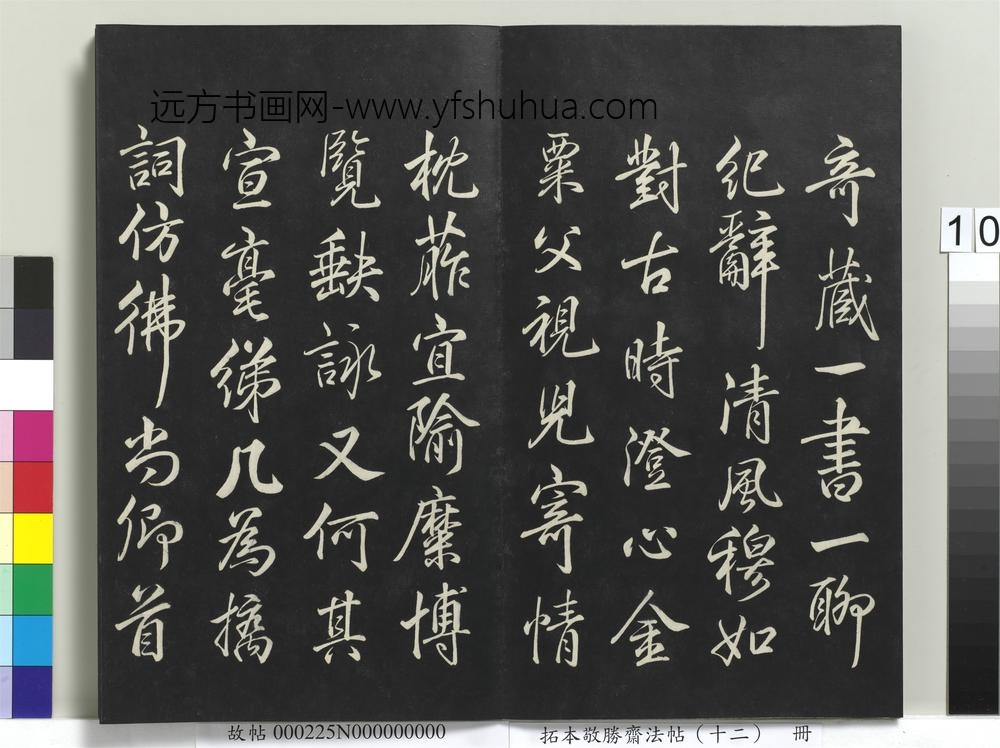 远方书画网-www.yfshuhua.com
奇藏一書一聊
紀辭清風穆如
對古時澄心金
粟父視兒寄情
枕葄宜隃麋博
覽缺詠又何其
宣毫綈几為摛
詞仿彿尚卿首
10
故帖 000225N000000000
拓本敬勝齋法帖（十二） 冊